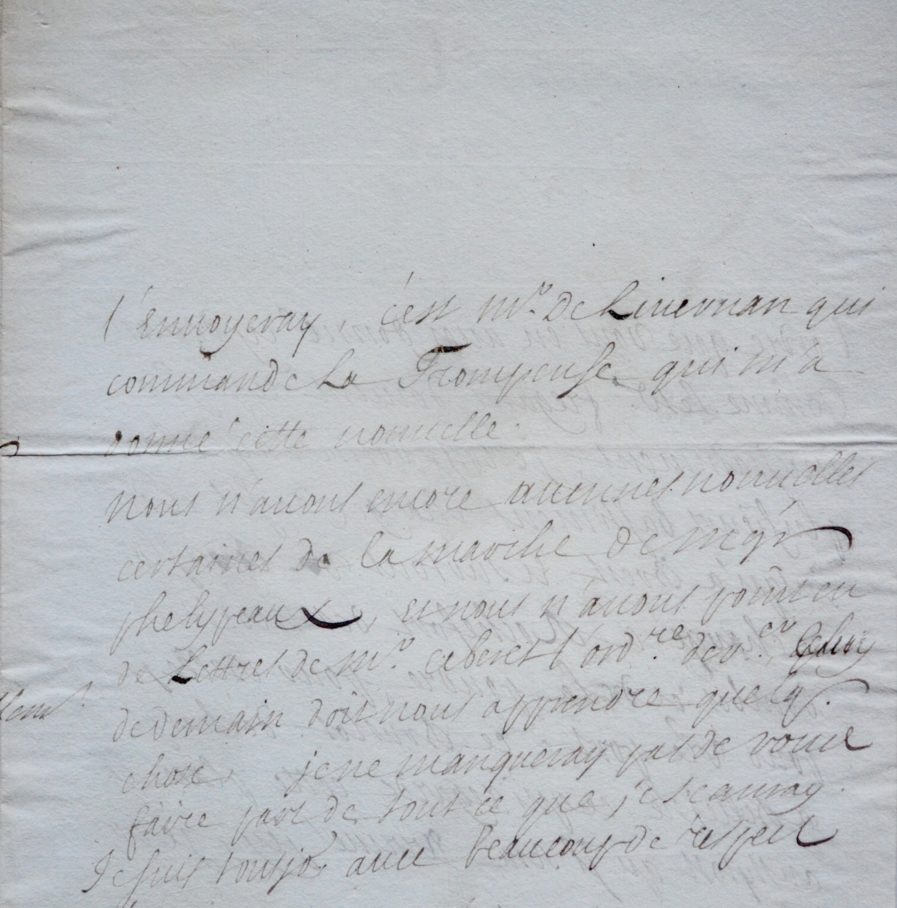 l'Ennoyeray, c'est mr. de Linernan qui
commande La Trompeuse qui m'a
donné cette nouuelle.
nous n'auons encore aucunnes nouuelles
certaines de la marche de mgr
phelypeaux, et nous n'auons point eu
de Lettres de mr. ceberet l'ordre. de
de demain doit nous apprendre quelq.
chose, je ne manqueray pas de vous
faire part de tout ce que j'e sçauray.
Je suis toujo. auec beaucoup de respect